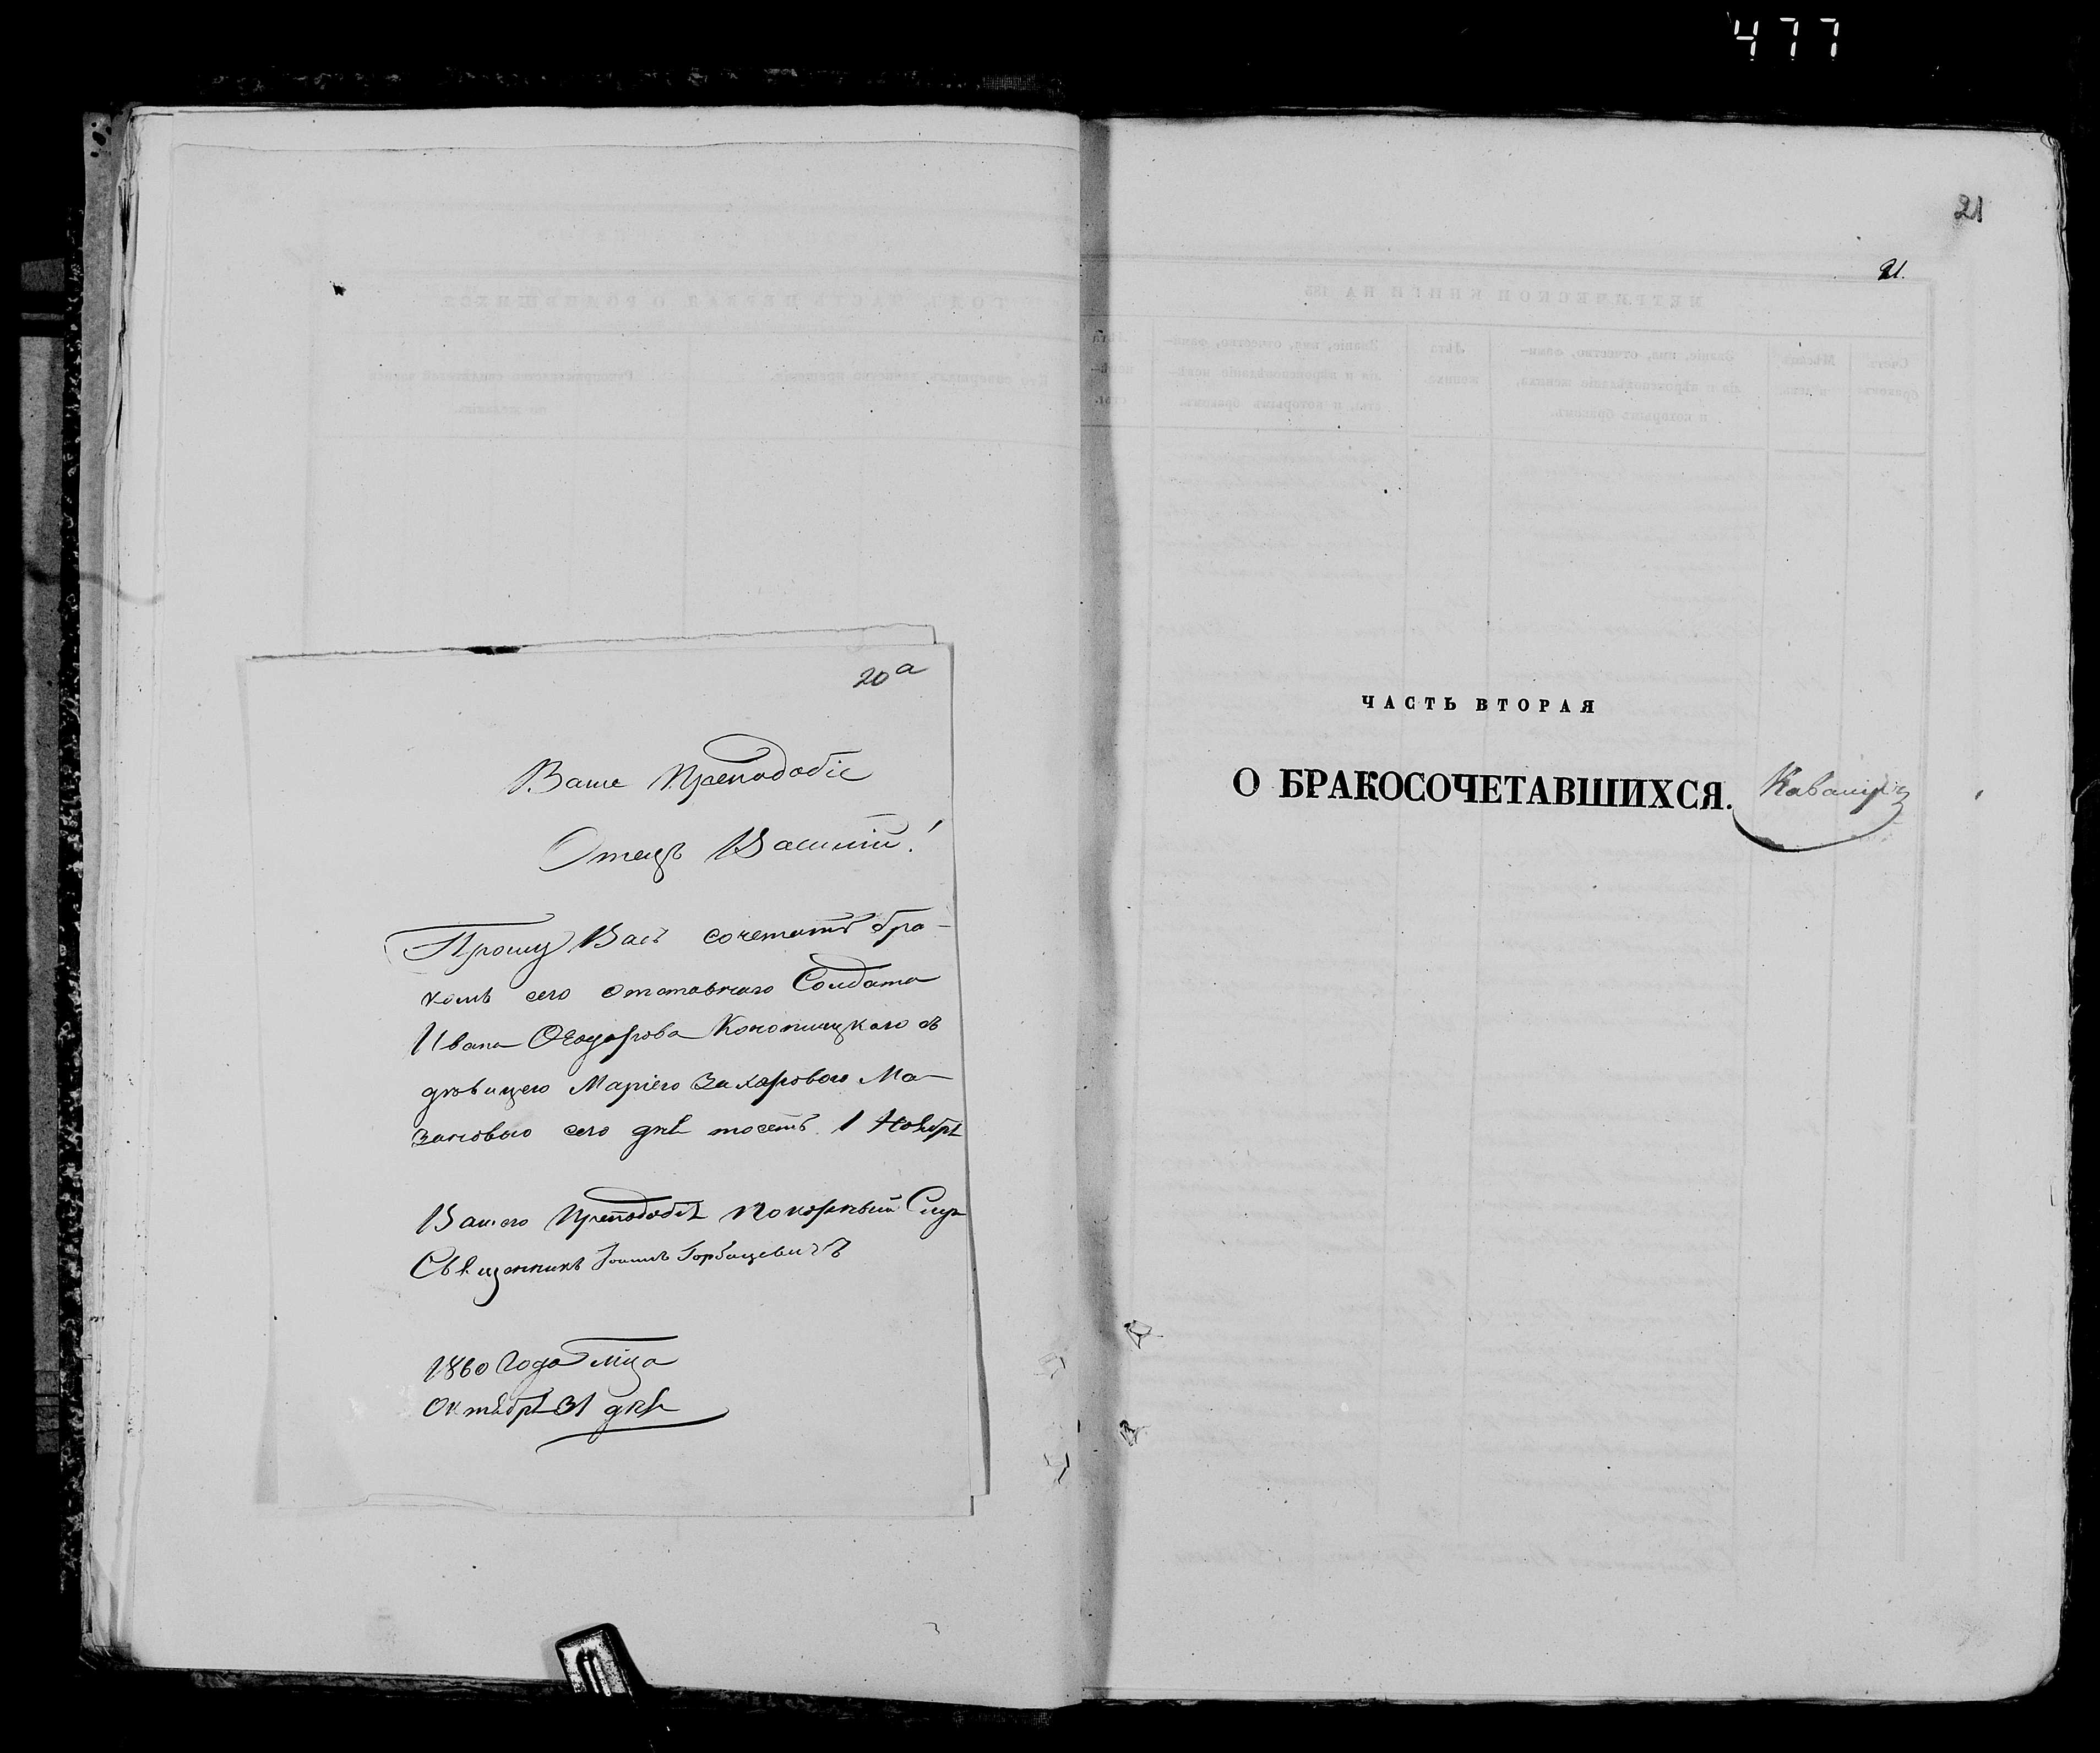 477
20а
Ваше Преподобіе
Отецъ Василій!
Прошу Васъ сочетать бра-
комъ сего отставнаго Солдата
Ивана Ѳеодорова Конопицкаго съ
дѣвицею Маріею Захаровою Ма-
зановою сего дня тоесть 1 Ноября
Вашего Преподобія покорный Слуга
Священникъ Іоаннъ Горбацевичъ
1860 Года мца
Октября 31 дня
21
21.
ЧАСТЬ ВТОРАЯ
О БРАКОСОЧЕТАВШИХСЯ.